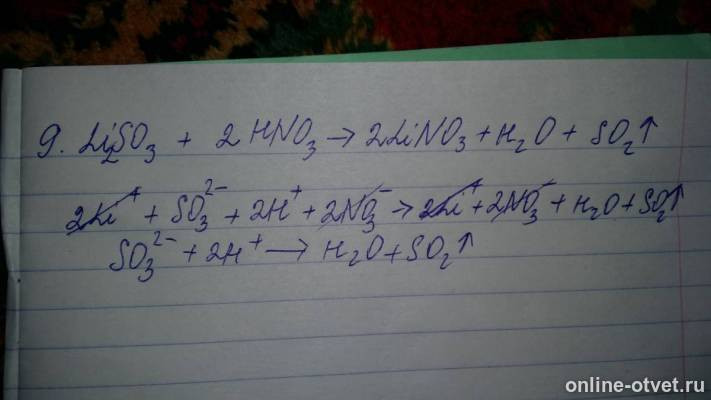 9. Li₂SO₃ + 2HNO₃ → 2LiNO₃ + H₂O + SO₂↑
2Li⁺ + SO₃²⁻ + 2H⁺ + 2NO₃⁻ → 2Li⁺ + 2NO₃⁻ + H₂O + SO₂↑
SO₃²⁻ + 2H⁺ → H₂O + SO₂↑
online-otvet.ru